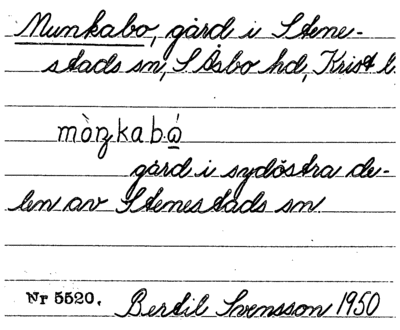 Munkabo, gård i Stene-
stads sn, S Åsbo hd, Krist l.
mòŋkabó̲
gård i sydöstra de-
len av Stenestads sn.
Nr 5520. Bertil Svensson 1950